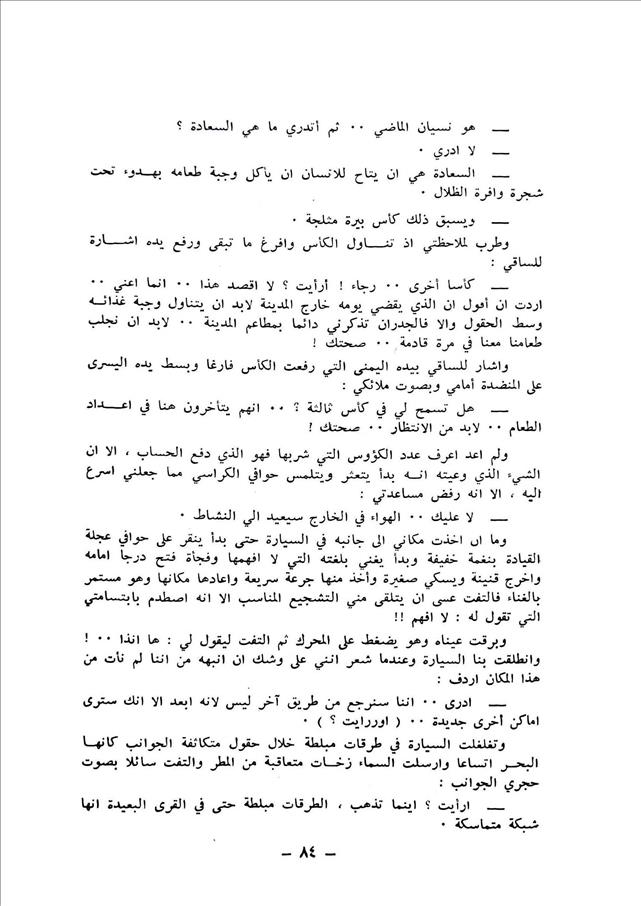 — هو نسيان الماضي ٠٠ ثم أتدري ما هي السعادة ؟
— لا ادري ٠
— السعادة هي ان يتاح للانسان ان يأكل وجبة طعامه بهدوء تحت
شجرة وافرة الظلال ٠
— ويسبق ذلك كأس بيرة مثلجة ٠
وطرب لملاحظتي اذ تنــاول الكأس وافرغ ما تبقى ورفع يده اشــارة
للساقي :
— كأسا أخرى ٠٠ رجاء ! أرأيت ؟ لا اقصد هذا ٠٠ انما اعني ٠٠
اردت ان أقول ان الذي يقضي يومه خارج المدينة لابد ان يتناول وجبة غذائــه
وسط الحقول والا فالجدران تذكرني دائما بمطاعم المدينة ٠٠ لابد ان نجلب
طعامنا معنا في مرة قادمة ٠٠ صحتك !
واشار للساقي بيده اليمنى التي رفعت الكأس فارغا وبسط يده اليسرى
على المنضدة أمامي وبصوت ملائكي :
— هل تسمح لي في كأس ثالثة ؟ ٠٠ انهم يتأخرون هنا في اعــداد
الطعام ٠٠ لابد من الانتظار ٠٠ صحتك !
ولم اعد اعرف عدد الكؤوس التي شربها فهو الذي دفع الحساب ، الا ان
الشيء الذي وعيته انــه بدأ يتعثر ويتلمس حوافي الكراسي مما جعلني اسرع
اليه ، الا انه رفض مساعدتي :
— لا عليك ٠٠ الهواء في الخارج سيعيد الي النشاط ٠
وما ان اخذت مكاني الى جانبه في السيارة حتى بدأ ينقر على حوافي عجلة
القيادة بنغمة خفيفة وبدأ يغني بلغته التي لا افهمها وفجأة فتح درجا امامه
واخرج قنينة ويسكي صغيرة وأخذ منها جرعة سريعة واعادها مكانها وهو مستمر
بالغناء فالتفت عسى ان يتلقى مني التشجيع المناسب الا انه اصطدم بابتسامتي
التي تقول له : لا افهم !!
وبرقت عيناه وهو يضغط على المحرك ثم التفت ليقول لي : ها انذا ٠٠ !
وانطلقت بنا السيارة وعندما شعر انني على وشك ان انبهه من اننا لم نأت من
هذا المكان اردف :
— ادرى ٠٠ اننا سنرجع من طريق آخر ليس لانه ابعد الا انك سترى
اماكن أخرى جديدة ٠٠ ( اوررايت ؟ ) ٠
وتغلغلت السيارة في طرقات مبلطة خلال حقول متكاثفة الجوانب كانهــا
البحــر اتساعا وارسلت السماء زخــات متعاقبة من المطر والتفت سائلا بصوت
حجري الجوانب :
— ارأيت ؟ اينما تذهب ، الطرقات مبلطة حتى في القرى البعيدة انها
شبكة متماسكة ٠
– ٨٤ –